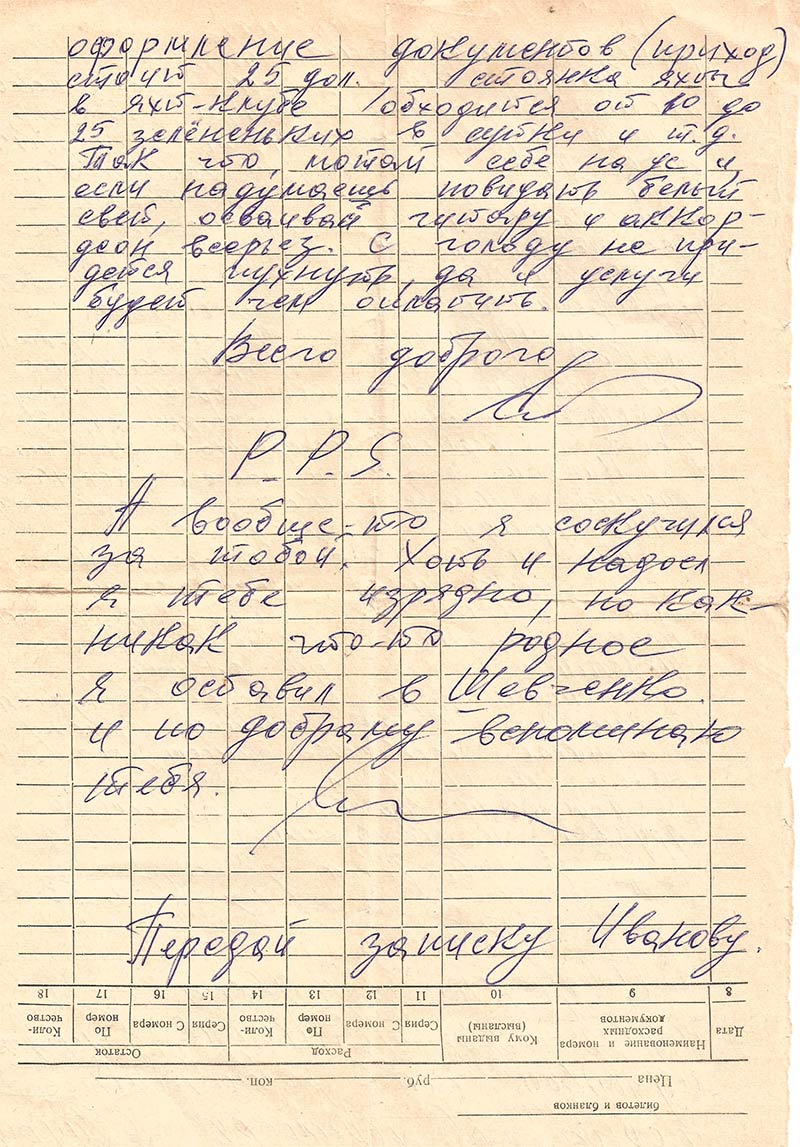 оформление документов (приход)
стоит 25 дол. стоянка яхты
в яхт-клубе обходится от 10 до
25 зелёненьких в сутки и т.д.
Так что, мотай себе на ус и,
если надумаешь повидать белый
свет, осваивай гитару и аккор-
деон всерьез. С голоду не при-
дется пухнуть, да и услуги
будет чем оплатить.
Всего доброго
P.P.S.
А вообще-то я соскучился
за тобой. Хоть и надоел
я тебе изрядно, но как-
никак что-то родное
я оставил в Шевченко
и по доброму вспоминаю
тебя.
Передай записку Иванову.
18 17 16 15 14 13 12 11 10 9 8
Коли-чество По номер С номера Серия Коли-чество По номер С номера Серия Кому выданы (высланы) Наименование и номера расходных документов Дата
Остаток Расход
Цена руб. коп.
билетов и бланков